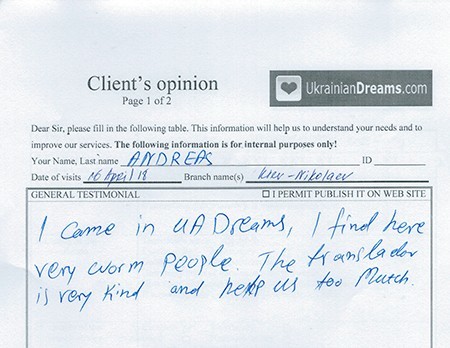 Client's opinion
Page 1 of 2
UkrainianDreams.com
Dear Sir, please fill in the following table. This information will help us to understand your needs and to
improve our services. The following information is for internal purposes only!
Your Name, Last name ANDREAS ID
Date of visits 16 April 18 Branch name(s) Kiev-Nikolaev
GENERAL TESTIMONIAL ☐ I PERMIT PUBLISH IT ON WEB SITE
I came in UADreams, I find here
very worm people. The translador
is very kind and help us too Mutch.